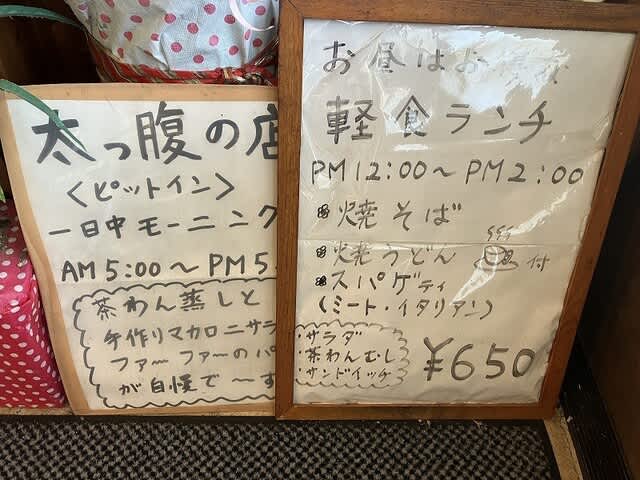 太っ腹の店
<ピットイン>
一日中モーニング
AM5:00～PM5
茶わん蒸しと
手作りマカロニサラ
ファーファーのパ
が自慢で～す
お昼はお
軽食ランチ
PM12:00～PM2:00
焼そば
焼うどん 付
スパゲティ
(ミート・イタリアン)
・サラダ
・茶わんむし
・サンドイッチ
¥650